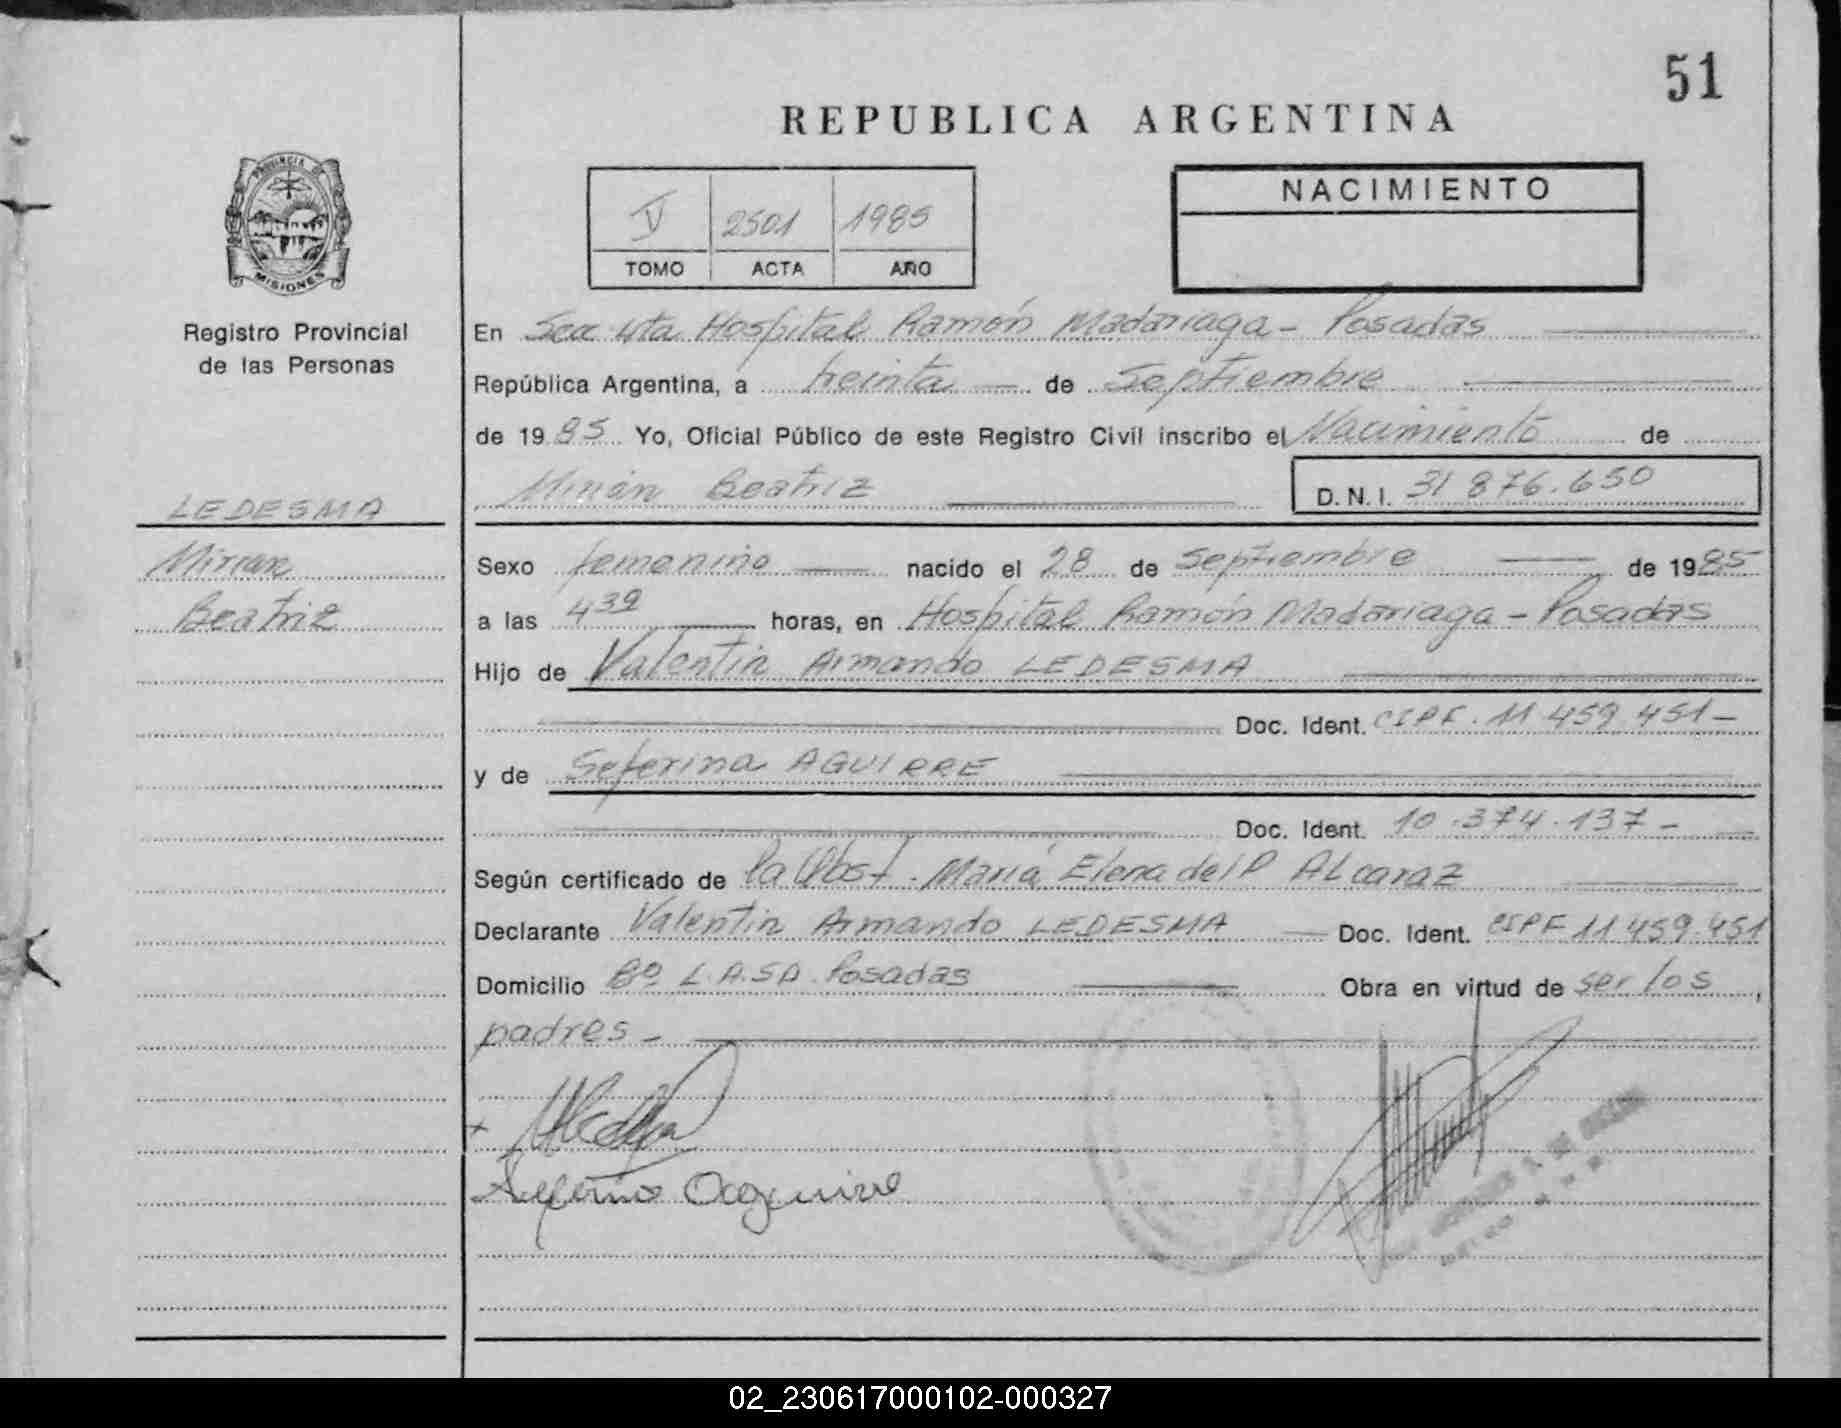 51
REPUBLICA ARGENTINA
V 2501 1985
TOMO ACTA AÑO
NACIMIENTO
PROVINCIA DE
MISIONES
Registro Provincial
de las Personas
LEDESMA
Mirian
Beatriz
En Secc 4ta Hospital Ramón Madariaga - Posadas
República Argentina, a treinta de Septiembre
de 1985 Yo, Oficial Público de este Registro Civil inscribo el Nacimiento de
Mirian Beatriz D.N.I. 31 876.650
Sexo femenino nacido el 28 de Septiembre de 1985
a las 4 39 horas, en Hospital Ramón Madariaga - Posadas
Hijo de Valentin Armando LEDESMA
Doc. Ident. CIPF. 11.459.451 -
y de Seferina AGUIRRE
Doc. Ident. 10.374.137 -
Según certificado de la Obst. María Elena del P ALcaraz
Declarante Valentin Armando LEDESMA Doc. Ident. CIPF 11 459.451
Domicilio Bº L.A.SA. Posadas Obra en virtud de ser los ,
padres -
02_230617000102-000327